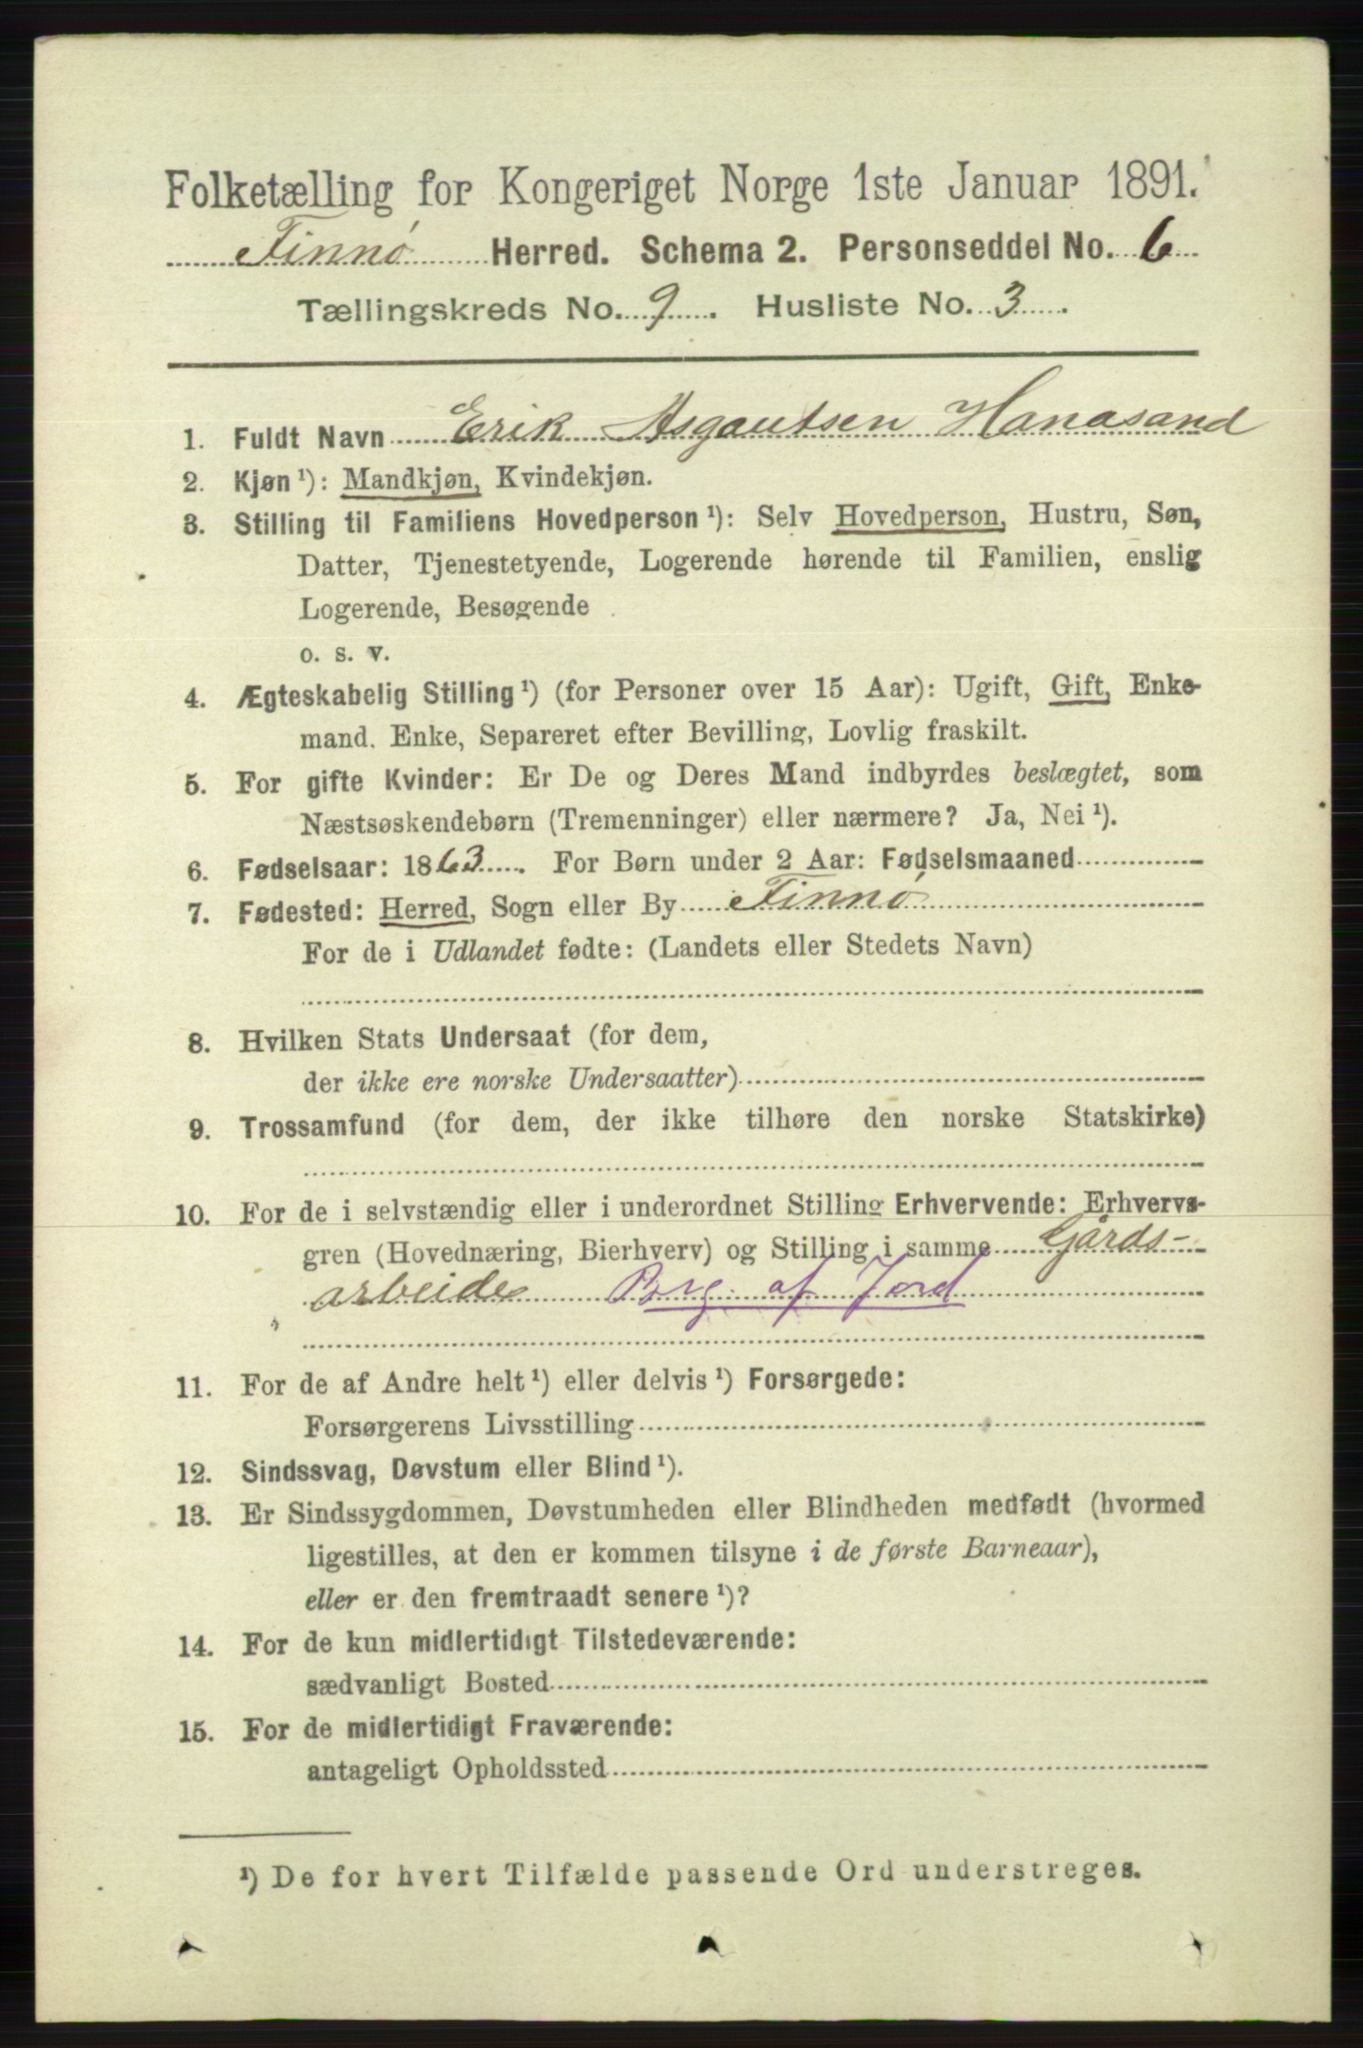 Folketælling for Kongeriget Norge 1ste Januar 1891.
Finnø Herred. Schema 2. Personseddel No. 6
Tællingskreds No. 9. Husliste No. 3.
1. Fuldt Navn Erik Asgautsen Hanasand
2. Kjøn¹): Mandkjøn, Kvindekjøn.
3. Stilling til Familiens Hovedperson¹): Selv Hovedperson, Hustru, Søn,
Datter, Tjenestetyende, Logerende hørende til Familien, enslig
Logerende, Besøgende
o. s. v.
4. Ægteskabelig Stilling¹) (for Personer over 15 Aar): Ugift, Gift, Enke-
mand. Enke, Separeret efter Bevilling, Lovlig fraskilt.
5. For gifte Kvinder: Er De og Deres Mand indbyrdes beslægtet, som
Næstsøskendebørn (Tremenninger) eller nærmere? Ja, Nei¹).
6. Fødselsaar: 1863. For Børn under 2 Aar: Fødselsmaaned
7. Fødested: Herred, Sogn eller By Finnø
For de i Udlandet fødte: (Landets eller Stedets Navn)
8. Hvilken Stats Undersaat (for dem,
der ikke ere norske Undersaatter)
9. Trossamfund (for dem, der ikke tilhøre den norske Statskirke)
10. For de i selvstændig eller i underordnet Stilling Erhvervende: Erhvervs-
gren (Hovednæring, Bierhverv) og Stilling i samme Gårds-
arbeide Brg. af Jord
11. For de af Andre helt¹) eller delvis¹) Forsørgede:
Forsørgerens Livsstilling
12. Sindssvag, Døvstum eller Blind¹).
13. Er Sindssygdommen, Døvstumheden eller Blindheden medfødt (hvormed
ligestilles, at den er kommen tilsyne i de første Barneaar),
eller er den fremtraadt senere¹)?
14. For de kun midlertidigt Tilstedeværende:
sædvanligt Bosted
15. For de midlertidigt Fraværende:
antageligt Opholdssted
¹) De for hvert Tilfælde passende Ord understreges.